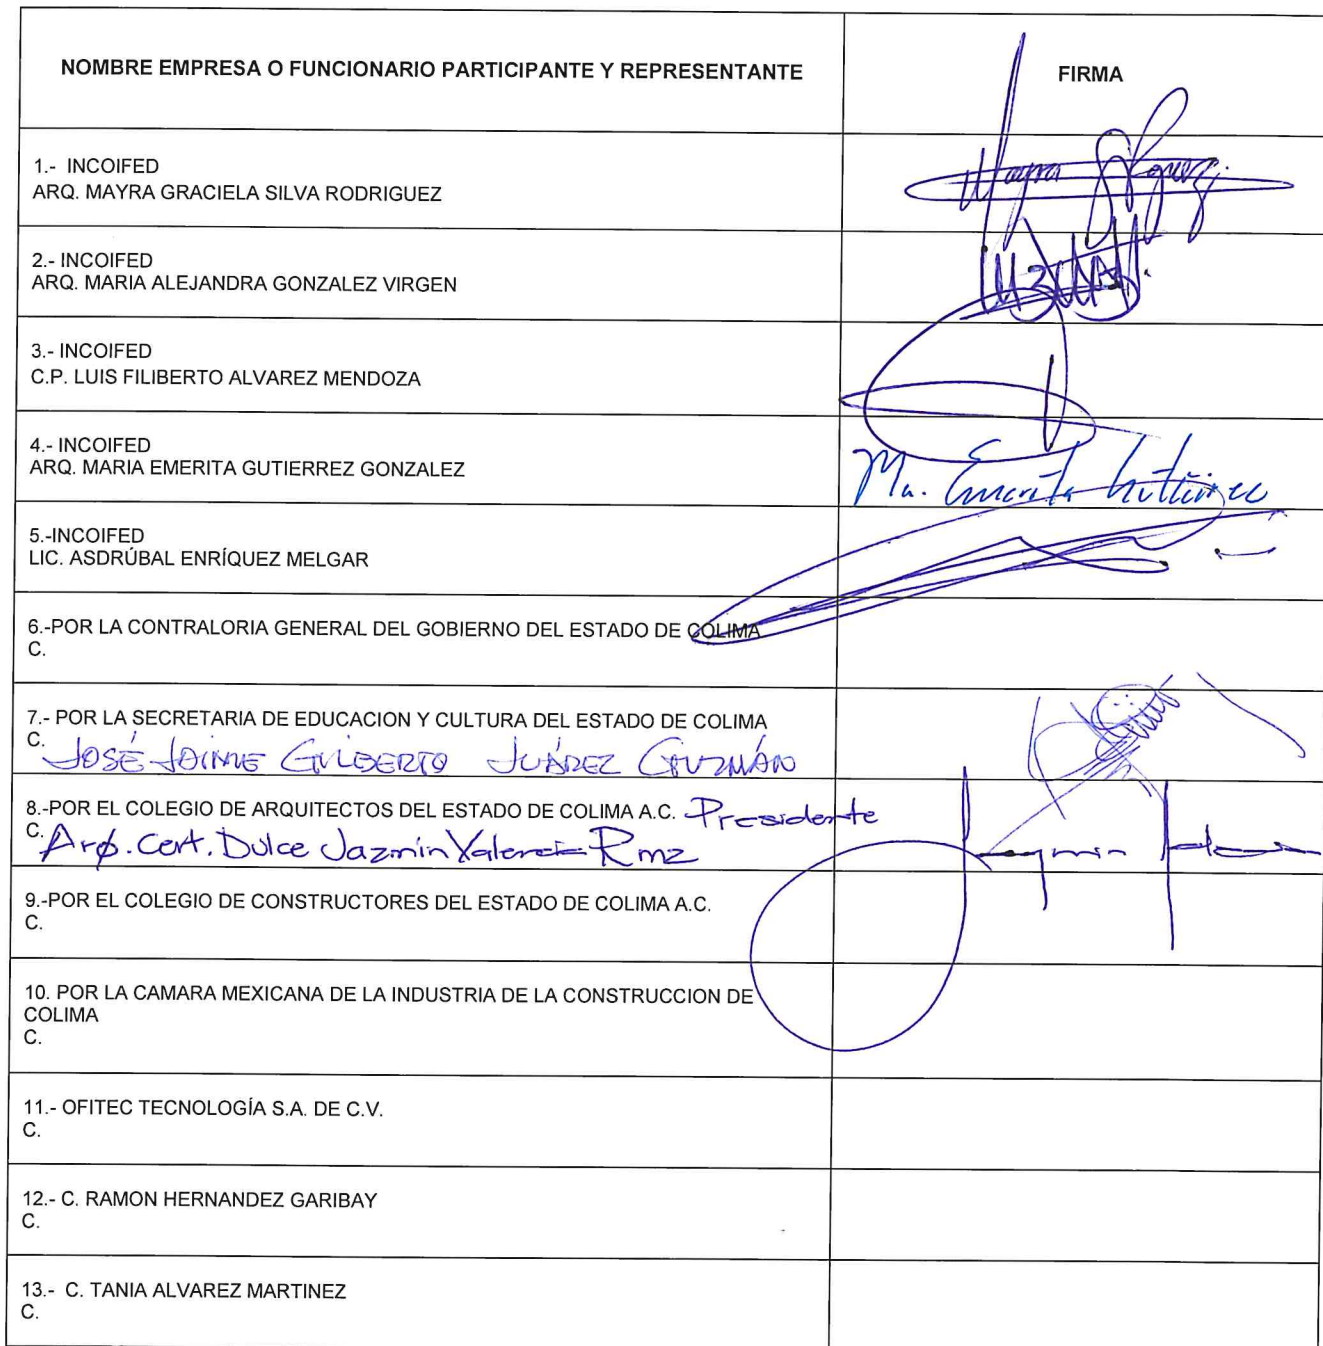 NOMBRE EMPRESA O FUNCIONARIO PARTICIPANTE Y REPRESENTANTE
FIRMA
1.- INCOIFED
ARQ. MAYRA GRACIELA SILVA RODRIGUEZ
2.- INCOIFED
ARQ. MARIA ALEJANDRA GONZALEZ VIRGEN
3.- INCOIFED
C.P. LUIS FILIBERTO ALVAREZ MENDOZA
4.- INCOIFED
ARQ. MARIA EMERITA GUTIERREZ GONZALEZ
Ma. Emerita Gutiérrez
5.-INCOIFED
LIC. ASDRÚBAL ENRÍQUEZ MELGAR
6.-POR LA CONTRALORIA GENERAL DEL GOBIERNO DEL ESTADO DE COLIMA
C.
7.- POR LA SECRETARIA DE EDUCACION Y CULTURA DEL ESTADO DE COLIMA
C. JOSÉ JAIME GILBERTO JUÁREZ GUZMÁN
8.-POR EL COLEGIO DE ARQUITECTOS DEL ESTADO DE COLIMA A.C. Presidente
C. Arq. Cert. Dulce Jazmín Valencia Rmz
9.-POR EL COLEGIO DE CONSTRUCTORES DEL ESTADO DE COLIMA A.C.
C.
10. POR LA CAMARA MEXICANA DE LA INDUSTRIA DE LA CONSTRUCCION DE
COLIMA
C.
11.- OFITEC TECNOLOGÍA S.A. DE C.V.
C.
12.- C. RAMON HERNANDEZ GARIBAY
C.
13.- C. TANIA ALVAREZ MARTINEZ
C.